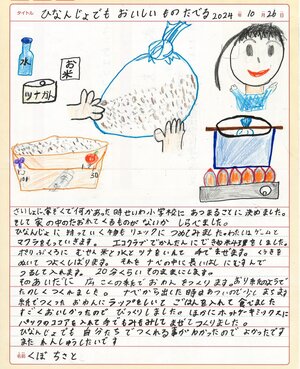 タイトル ひなんじょでも おいしい ものたべる 2024年 10月 26日
水
お米
ツナかん
さいしょに家ぞくで何かあった時せいわ小学校に あつまることに決めました。
そして 家の中のたおれてくるものが ないか しらべました。
ひなんじょに 持っていく物も リュックに つめてみました。わたしはゲームと
マフラをもっていきます。 エコクラブでかんたんにできるお米料理をしました。
ポリぶくろに むせん米と水とツナをいれて 手でまぜます。くうきを
ぬいて つよくしばります。それを ナベの中に長いはしにむすんで
つるして入れます。 20分くらいそのままにします。
そのあいだに 広こくの紙で おわんをつくります おり紙のようで
たのしくつくれました。 ナベから出した時はあついので少しまちます
紙でつくった おわんにラップをしいて ごはんを入れて食べました
すごくおいしかったので びっくりしました。ほかにホットケーキミックスに
パックのココアを入れて手でもみもみしてまぜてつくりました。
ひなんじょでも 自分たちでつくれる事がわかったので よかったです
また れんしゅうしたいです
名前 くぼ ちさと